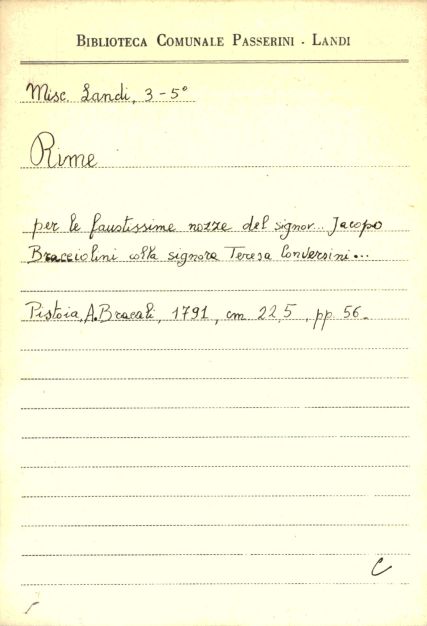 BIBLIOTECA COMUNALE PASSERINI - LANDI
Misc. Landi, 3-5°
Rime
per le faustissime nozze del signor... Jacopo
Bracciolini colla signora Teresa Conversini...
Pistoia, A. Bracali, 1791, cm 22,5, pp. 56.
C